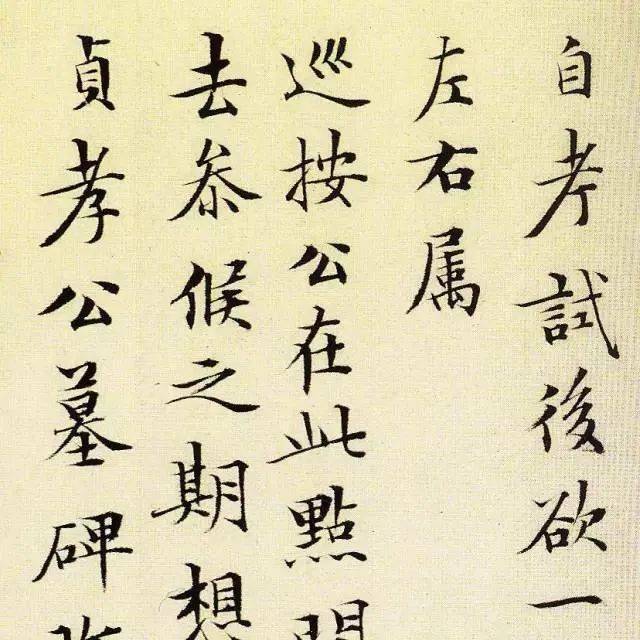 自考試後欲一
左右属
巡按公在此點
去叅候之期想
貞孝公墓碑